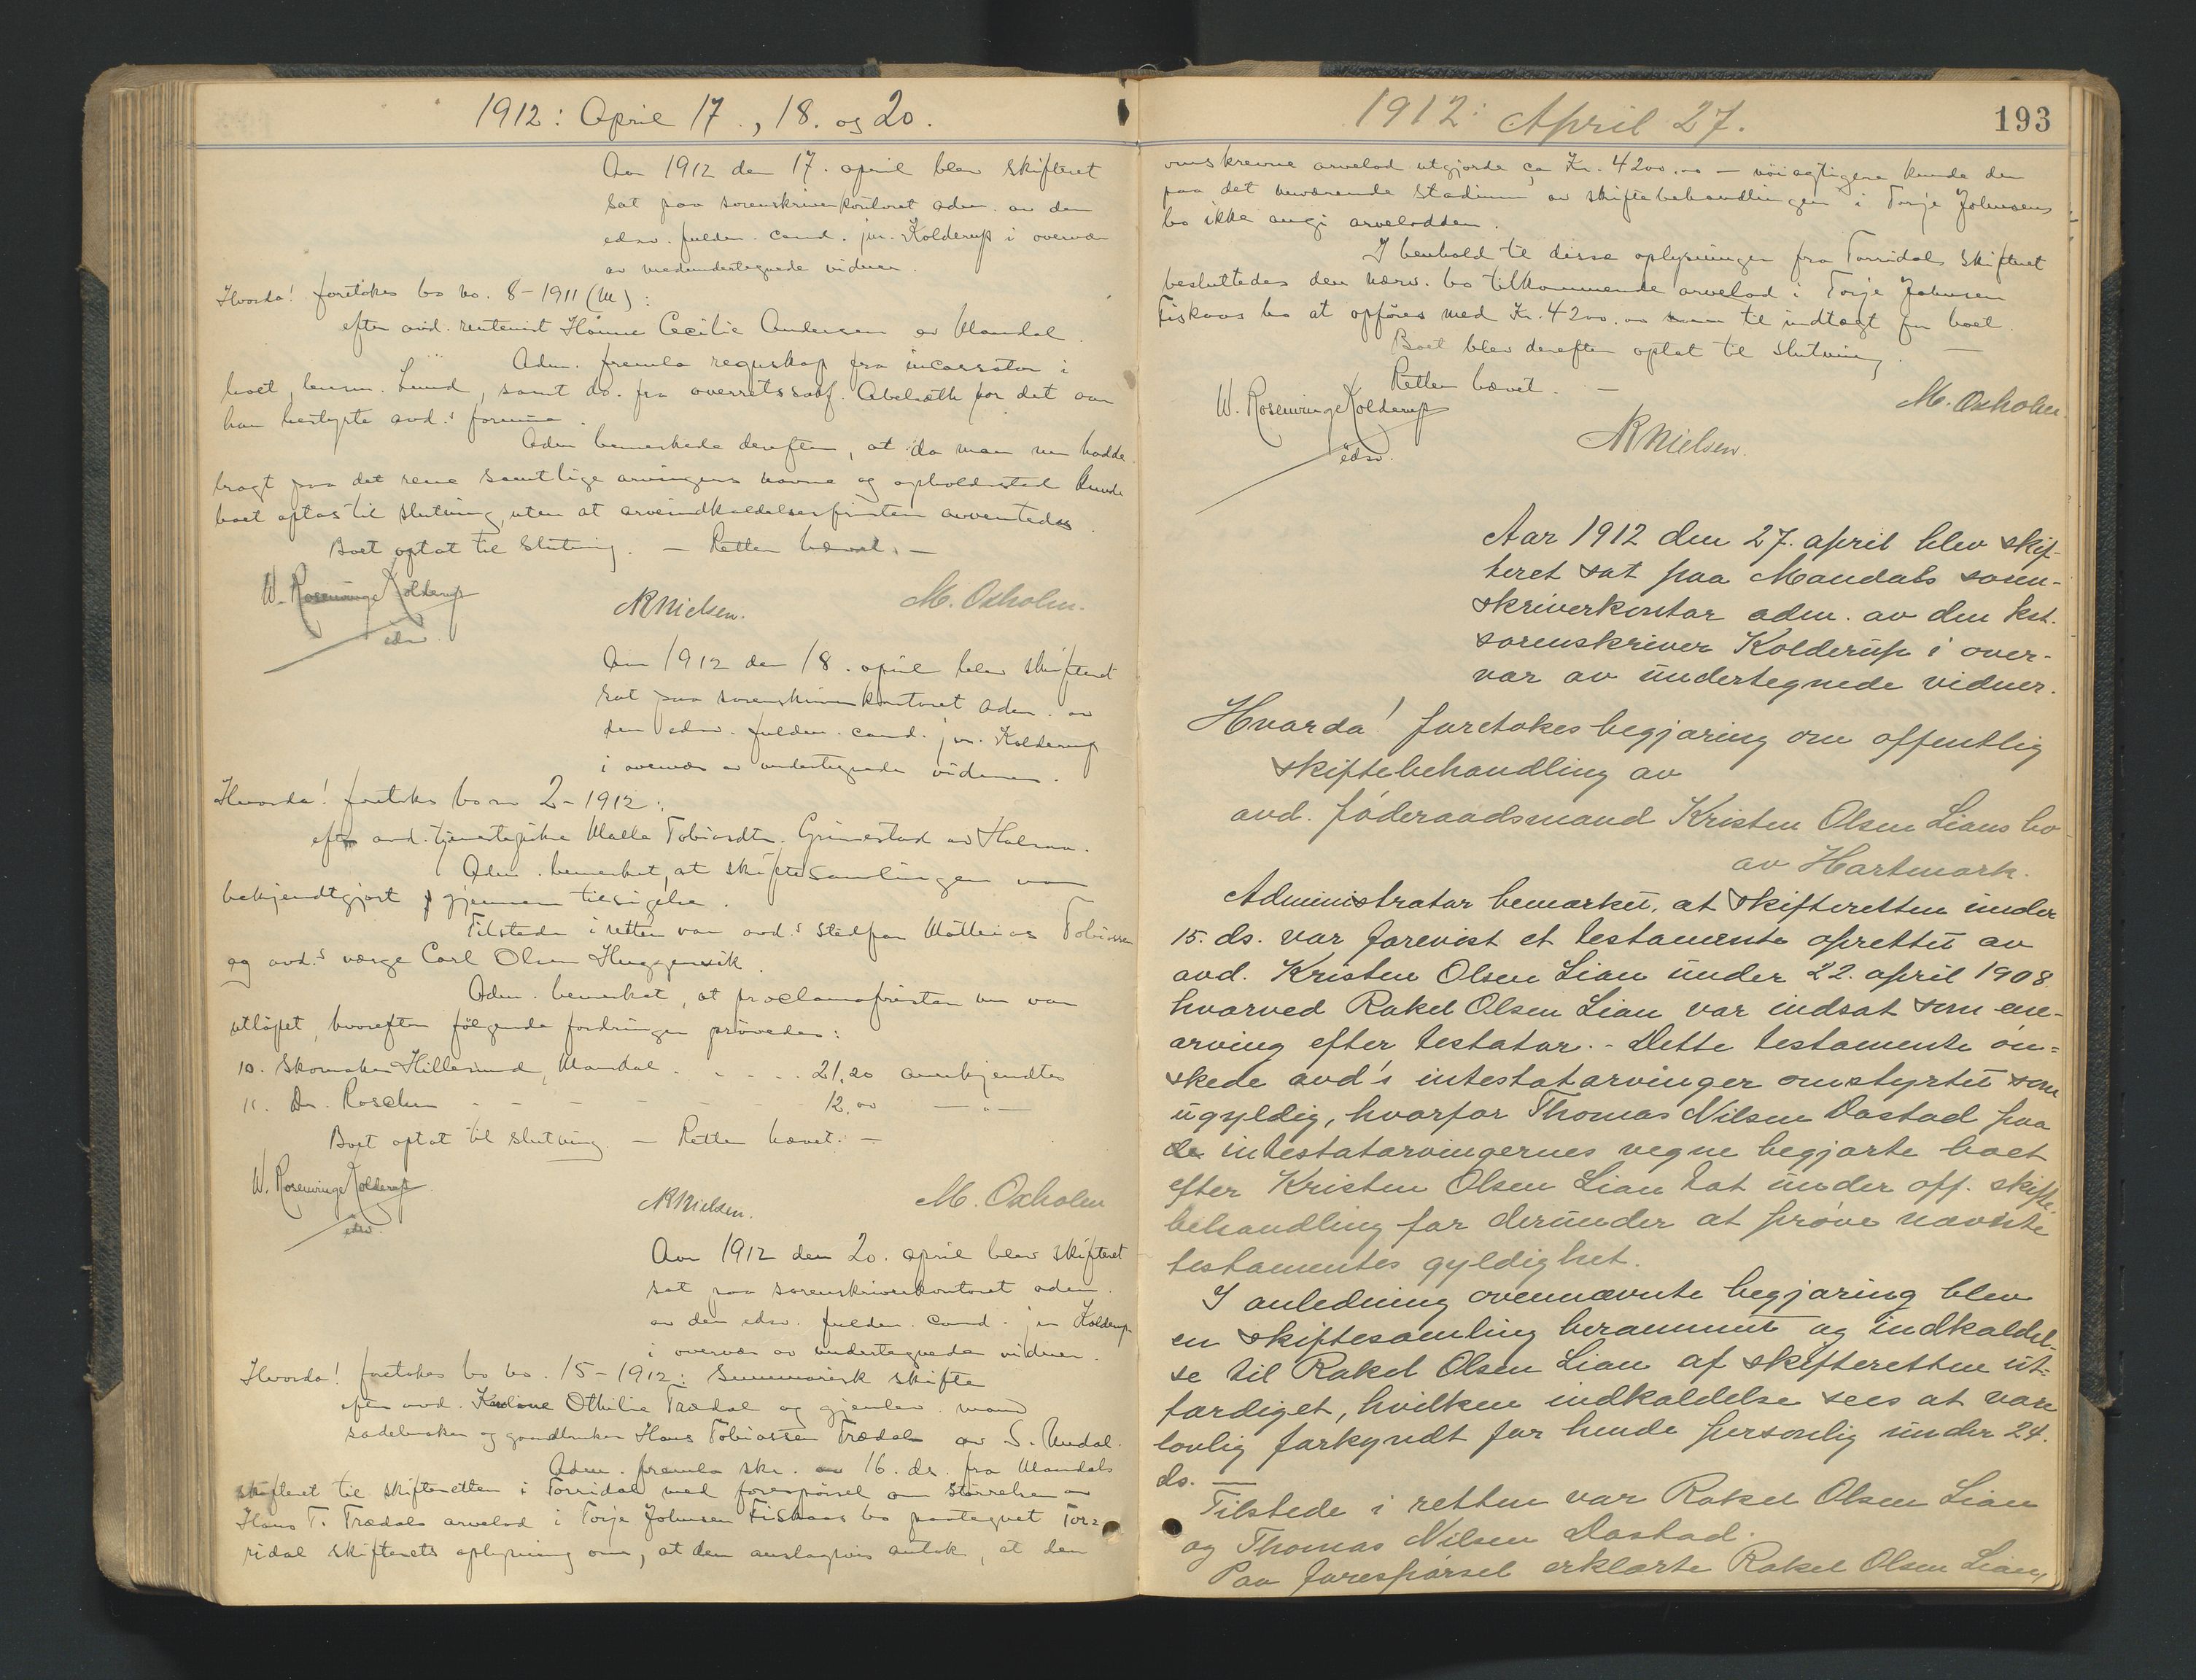 1912: April 17., 18. og 20.
Aar 1912 den 17. april blev skifteret
sat paa sorenskriverkontoret adm. av den
edsv. fuldm. cand. jur. Kolderup i overvær
av medundertegnede vidner.
Hvorda! foretokes bo no. 8-1911 (M):
efter avd. rentenist Hanne Cecilie Andersen av Mandal.
Adm. fremla regnskap fra incassator i
boet, Lund, samt do. fra overretssakf. for det om
han bestyrte avd.s formue.
Adm bemerkede derefter, at da man nu hadde
bragt paa det rene samtlige arvingers navne og opholdssted kunde
boet optas til slutning, uten at arveindkaldelsesfristen avventedes.
Boet optat til slutning. — Retten hævet. —
W. Rosenvinge Kolderup
edsv.
NRNielsen.
M. Oxholm.
Aar 1912 den 18. april blev skifteret
sat paa sorenskriverkontoret adm. av
den edsv. fuldm. cand. jur. Kolderup
i overvær av undertegnede vidner.
Hvorda! foretokes bo no 2-1912:
efter avd. tjenestepike Malla Tobiasdtr. Grimestad av Halsaa.
Adm. bemerket, at skiftesamlingen var
bekjendtgjort gjennem tilsigelse.
Tilstede i retten var avd.s stedfar Mathias Tobiassen
og avd.s værge Carl Olsen Huggenvik.
Adm. bemerket, at proclamafristen nu var
utløpet, hvorefter følgende fordringer prøvedes:
10. Skomaker Hillesund, Mandal . . . . 21.20 anerkjendtes
11. Dr. Roscher - - - - - - 12.00 — " —
Boet optat til slutning — Retten hævet. —
W. Rosenvinge Kolderup
edsv.
NRNielsen.
M. Oxholm
Aar 1912 den 20. april blev skifteret
sat paa sorenskriverkontoret adm.
av den edsv. fuldm. cand. jur Kolderup
i overvær av undertegnede vidner.
Hvorda! foretokes bo no. 15-1912: Summarisk skifte
efter avd. Karoline Othilie Trædal og gjenlev. mand
sadelmaker og gaardbruker Hans Tobiassen Trædal av S. Undal.
Adm. fremla skr. av 16. ds. fra Mandals
skifteret til skifteretten i Torridal med forespørsel om størrelsen av
Hans T. Trædals arvelod i Torje Johnsen Fiskaas bo paategnet Tor=
ridal skifterets oplysning om, at den anslagsvis antok, at den
1912: April 27.
193
omskrevne arvelod utgjorde ca Kr. 4200.00 — nøiagtigere kunde den
paa det nuværende stadium av skiftebehandlingen i Torje Johnsens
bo ikke angi arvelodden.
I henhold til disse oplysninger fra Torridals skifteret
besluttedes den nærv. bo tilkommende arvelod i Torje Johnsen
Fiskaas bo at opføres med Kr. 4200.00 til indtægt for boet.
Boet blev derefter optat til slutning. —
Retten hævet. —
W. Rosenvinge Kolderup
edsv.
NRNielsen.
M. Oxholm.
Aar 1912 den 27. april blev skif-
teret sat paa Mandals soren-
skriverkontor adm. av den kst.
sorenskriver Kolderup i over-
vær av undertegnede vidner.
Hvorda! foretokes begjæring om offentlig
skiftebehandling av
avd. føderaadsmand Kristen Olsen Lians bo
av Hartmark.
Administrator bemærket, at skifteretten under
15. ds. var forevist et testamente oprettet av
avd. Kristen Olsen Lian under 22. april 1908.
hvorved Rakel Olsen Lian var indsat som ene-
arving efter testator. - Dette testamente øn=
skede avd's intestatarvinger omstyrtet som
ugyldig, hvorfor Thomas Nilsen Dastad paa
intestatarvingernes vegne begjærte boet
efter Kristen Olsen Lian tat under off. skifte-
behandling for derunder at prøve nævnte
testamentes gyldighet.
I anledning ovennævnte begjæring blev
en skiftesamling berammet og indkaldel-
se til Rakel Olsen Lian af skifteretten ut-
færdiget, hvilken indkaldelse sees at være
lovlig forkyndt for hende personlig under 24.
ds. —
Tilstede i retten var Rakel Olsen Lian
og Thomas Nilsen Dastad.
Paa forespørsel erklærte Rakel Olsen Lian,